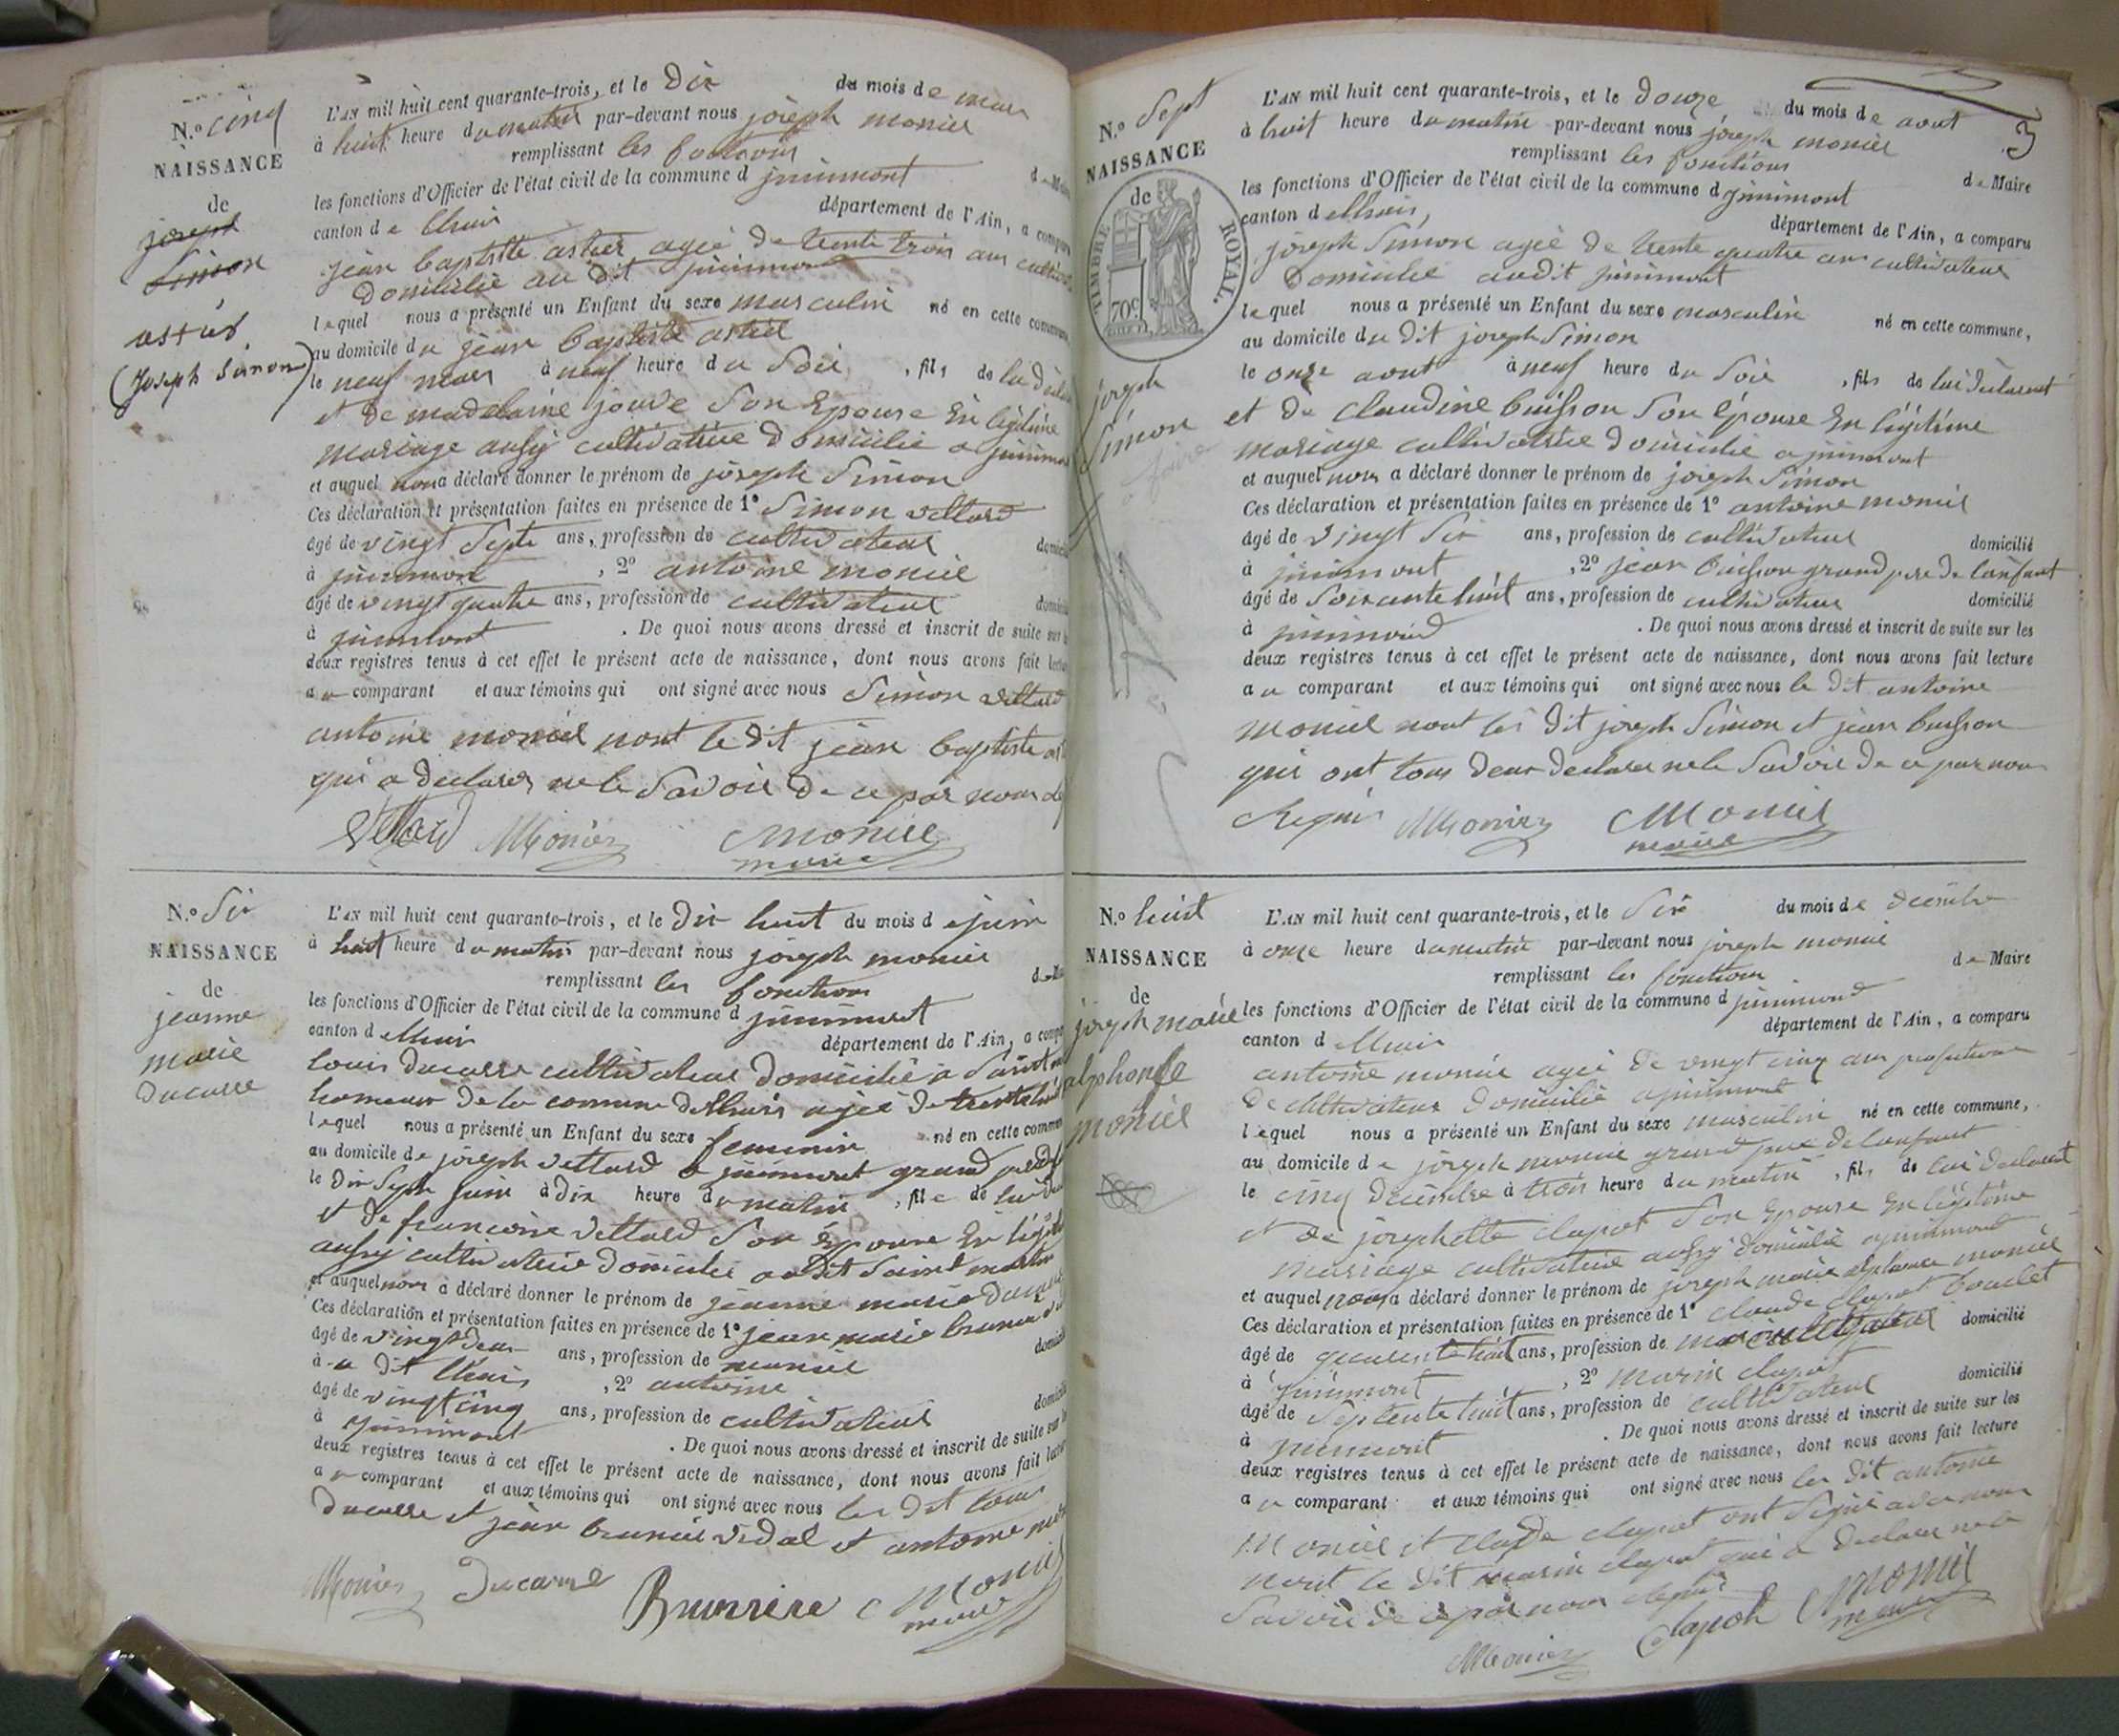 N.o cinq
NAISSANCE
de
joseph
Simon
astier
(Joseph Simon)
L'AN mil huit cent quarante-trois, et le dix du mois de mars
à huit heure du matin par-devant nous joseph monier
remplissant les fonctions
les fonctions d'Officier de l'état civil de la commune d jujurieux
canton de lhuis département de l'Ain, a comparu
jean baptiste astier agée de trente trois ans
domicilié au dit
lequel nous a présenté un Enfant du sexe masculin né en cette commune
au domicile du jean baptiste astier
le neuf mars à neuf heure du Soir, fils de lui
et de madelaine jouve Son Epouse En légitime
mariage aussy cultivatrice domicilié a
et auquel nous a déclaré donner le prénom de joseph Simon
Ces déclaration et présentation faites en présence de 1º Simon vettard
âgé de vingt Sept ans, profession de cultivateur
à , 2º antoine monier
âgé de vingt quatre ans, profession de cultivateur
à . De quoi nous avons dressé et inscrit de suite sur
deux registres tenus à cet effet le présent acte de naissance, dont nous avons fait lecture
au comparant et aux témoins qui ont signé avec nous Simon vettard
antoine monier nont le dit jean baptiste
qui a declarer ne le Savoir de ce par nous
Vettard Monier Monier
maire
N.o Six
NAISSANCE
de
jeanne
marie
ducarre
L'AN mil huit cent quarante-trois, et le dix huit du mois de juin
à huit heure du matin par-devant nous joseph monier
remplissant les fonctions
les fonctions d'Officier de l'état civil de la commune d
canton d lhuis département de l'Ain, a comparu
louis ducarre cultivateur domicilié à Saint
hameau de la commune de lhuis agée de
lequel nous a présenté un Enfant du sexe feminin né en cette commune
au domicile de joseph vettard a grand père
le dix Sept juin à dix heure du matin, fille de lui
et de francoise vettard Son épouse En
aussy cultivatrice domicilié audit Saint martin
et auquel nous a déclaré donner le prénom de jeanne marie
Ces déclaration et présentation faites en présence de 1º jean marie
âgé de vingt deux ans, profession de
à u dit lhuis , 2º antoine
âgé de vingt cinq ans, profession de cultivateur
à . De quoi nous avons dressé et inscrit de suite sur
deux registres tenus à cet effet le présent acte de naissance, dont nous avons fait
au comparant et aux témoins qui ont signé avec nous les dit louis
ducarre et jean et antoine
Monier Ducarre Monier
maire
3
N.o Sept
NAISSANCE
de
TIMBRE ROYAL.
70c
joseph
Simon
L'AN mil huit cent quarante-trois, et le douze du mois de aout
à huit heure du matin par-devant nous joseph monier
remplissant les fonctions de Maire
les fonctions d'Officier de l'état civil de la commune d
canton de lhuis, département de l'Ain, a comparu
joseph Simon agée de trente quatre ans cultivateur
domicilié audit
lequel nous a présenté un Enfant du sexe masculin né en cette commune,
au domicile du dit joseph Simon
le onze aout à neuf heure du Soir, fils de lui declarent
et de claudine buisson Son épouse En légitime
mariage cultivatrice domicilié a
et auquel nous a déclaré donner le prénom de joseph Simon
Ces déclaration et présentation faites en présence de 1º antoine monier
âgé de vingt Six ans, profession de cultivateur domicilié
à , 2º jean buisson grand pere de lanfant
âgé de Soixante huit ans, profession de cultivateur domicilié
à . De quoi nous avons dressé et inscrit de suite sur les
deux registres tenus à cet effet le présent acte de naissance, dont nous avons fait lecture
au comparant et aux témoins qui ont signé avec nous le dit antoine
monier nont les dit joseph Simon et jean buisson
qui ont tous deux declarer ne le Savoir de ce par nous
Requis Monier Monier
maire
N.o huit
NAISSANCE
de
joseph marie
alphonse
monier
L'AN mil huit cent quarante-trois, et le Six du mois de decembre
à onze heure du matin par-devant nous joseph monier
remplissant les fonctions de Maire
les fonctions d'Officier de l'état civil de la commune d
canton d lhuis département de l'Ain, a comparu
antoine monier agée de vingt cinq ans profession
de cultivateur domicilié a
lequel nous a présenté un Enfant du sexe masculin né en cette commune,
au domicile de joseph monier grand pere de lanfant
le cinq decembre à trois heure du matin, fils de lui declarent
et de josephette clapot Son Epouse En legitime
mariage cultivatrice aussy domicilié a
et auquel nous a déclaré donner le prénom de joseph marie alphonse monier
Ces déclaration et présentation faites en présence de 1º claude clapot
âgé de quarente huit ans, profession de domicilié
à , 2º marin clapot
âgé de Septente huit ans, profession de cultivateur domicilié
à . De quoi nous avons dressé et inscrit de suite sur les
deux registres tenus à cet effet le présent acte de naissance, dont nous avons fait lecture
au comparant et aux témoins qui ont signé avec nous les dit antoine
Monier et claude clapot ont Signé avec nous
nont le dit marin clapot qui a declarer ne le
Savoir de ce par nous requis
Monier Clapot Monier
maire